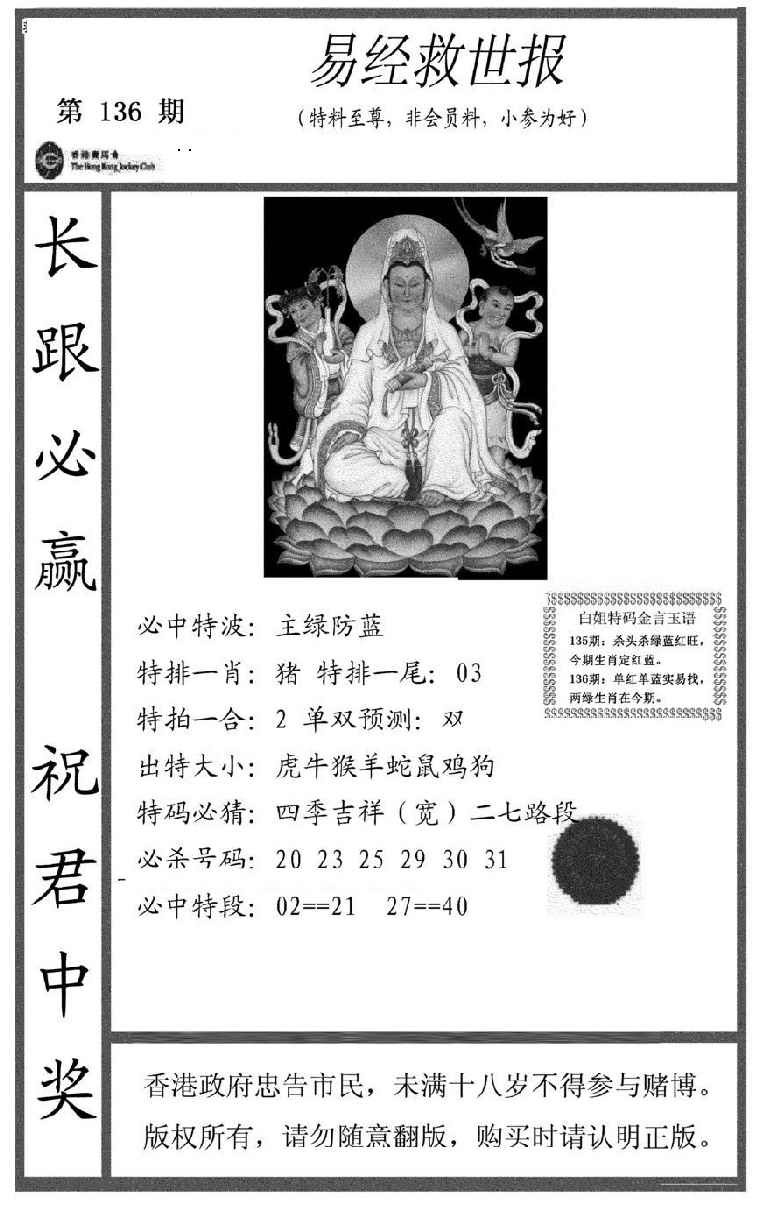 易经救世报
第 136 期
（特料至尊，非会员料，小参为好）
香港赛马会
The Hong Kong Jockey Club
长跟必赢
祝君中奖
必中特波：主绿防蓝
特排一肖：猪 特排一尾：03
特拍一合：2 单双预测：双
出特大小：虎牛猴羊蛇鼠鸡狗
特码必猜：四季吉祥（宽）二七路段
必杀号码：20 23 25 29 30 31
必中特段：02==21 27==40
白姐特码金言玉语
135期：杀头杀绿蓝红旺，
今期生肖定红蓝。
136期：单红单蓝实易找，
两绿生肖在今期。
香港政府忠告市民，未满十八岁不得参与赌博。
版权所有，请勿随意翻版，购买时请认明正版。